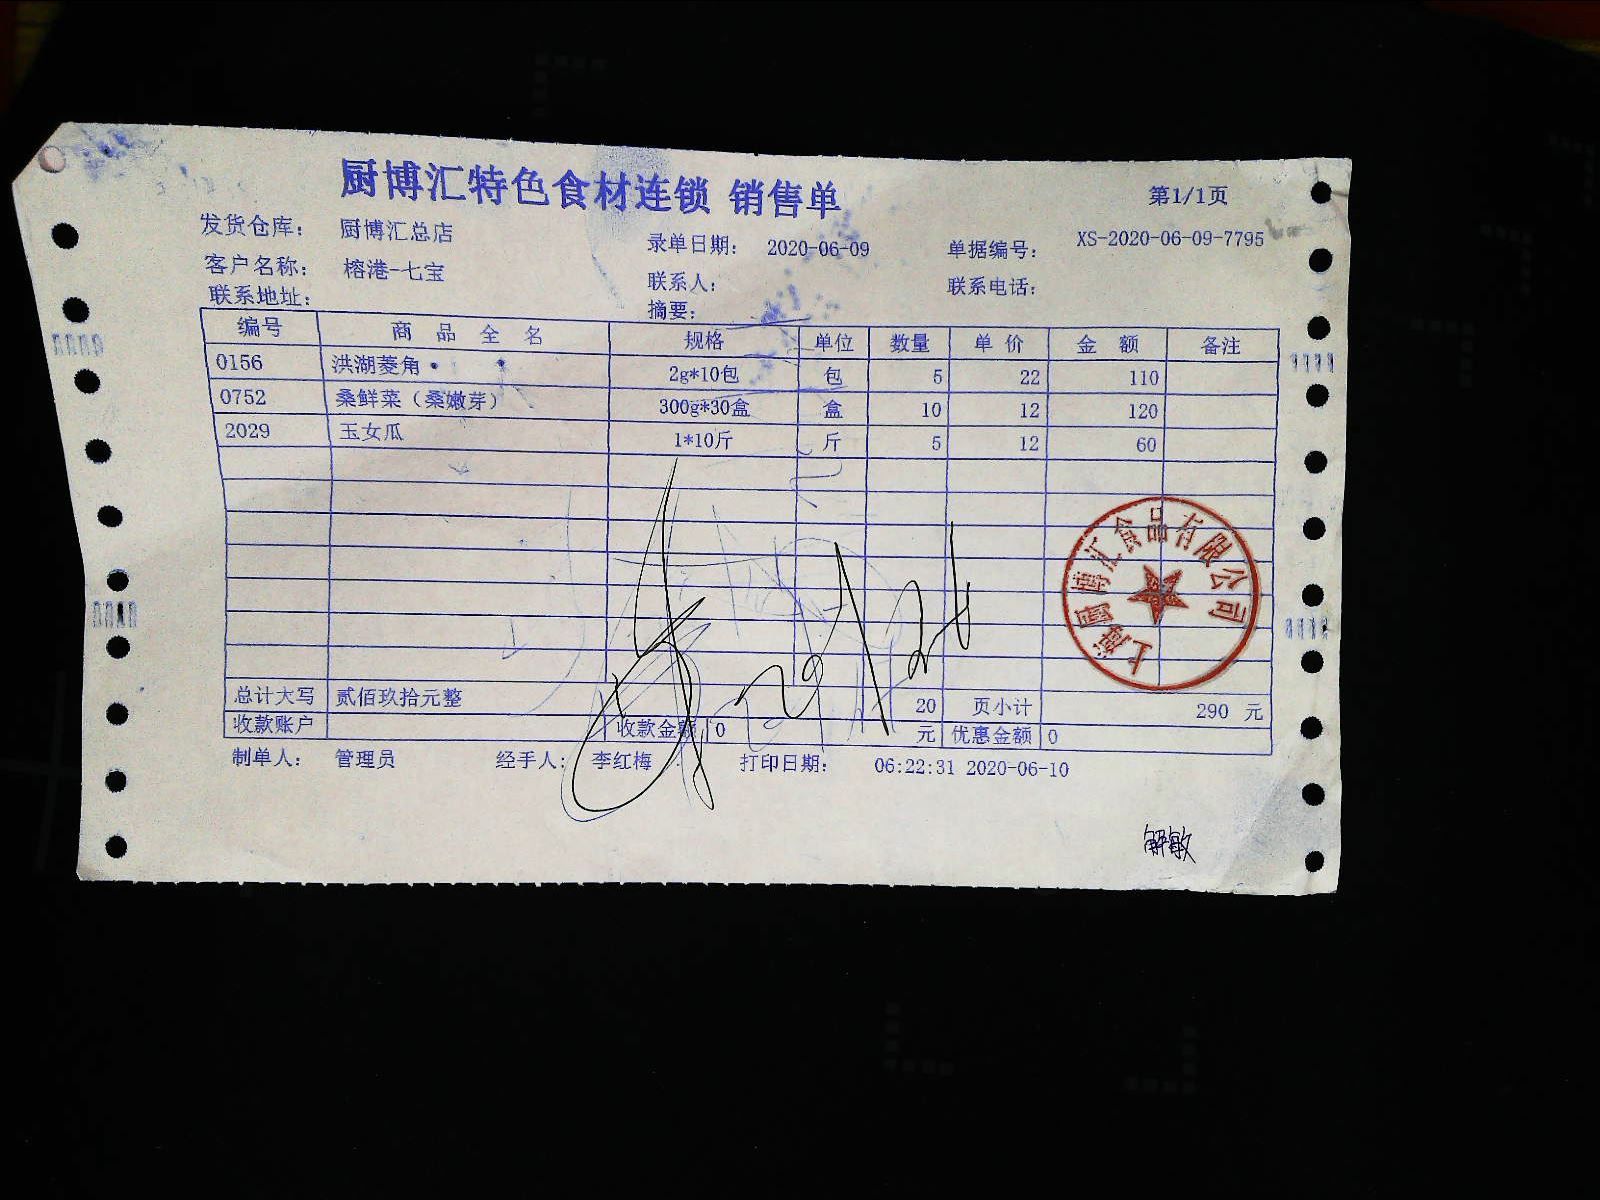 厨博汇特色食材连锁 销售单
第1/1页
发货仓库： 厨博汇总店 录单日期： 2020-06-09 单据编号： XS-2020-06-09-7795
客户名称： 榕港-七宝 联系人： 联系电话：
联系地址： 摘要：
编号 商品全名 规格 单位 数量 单价 金额 备注
0156 洪湖菱角 2g*10包 包 5 22 110
0752 桑鲜菜（桑嫩芽） 300g*30盒 盒 10 12 120
2029 玉女瓜 1*10斤 斤 5 12 60
上海厨博汇食品有限公司
总计大写 贰佰玖拾元整 20 页小计 290 元
收款账户 收款金额 0 元 优惠金额 0
制单人： 管理员 经手人： 李红梅 打印日期： 06:22:31 2020-06-10
解敏